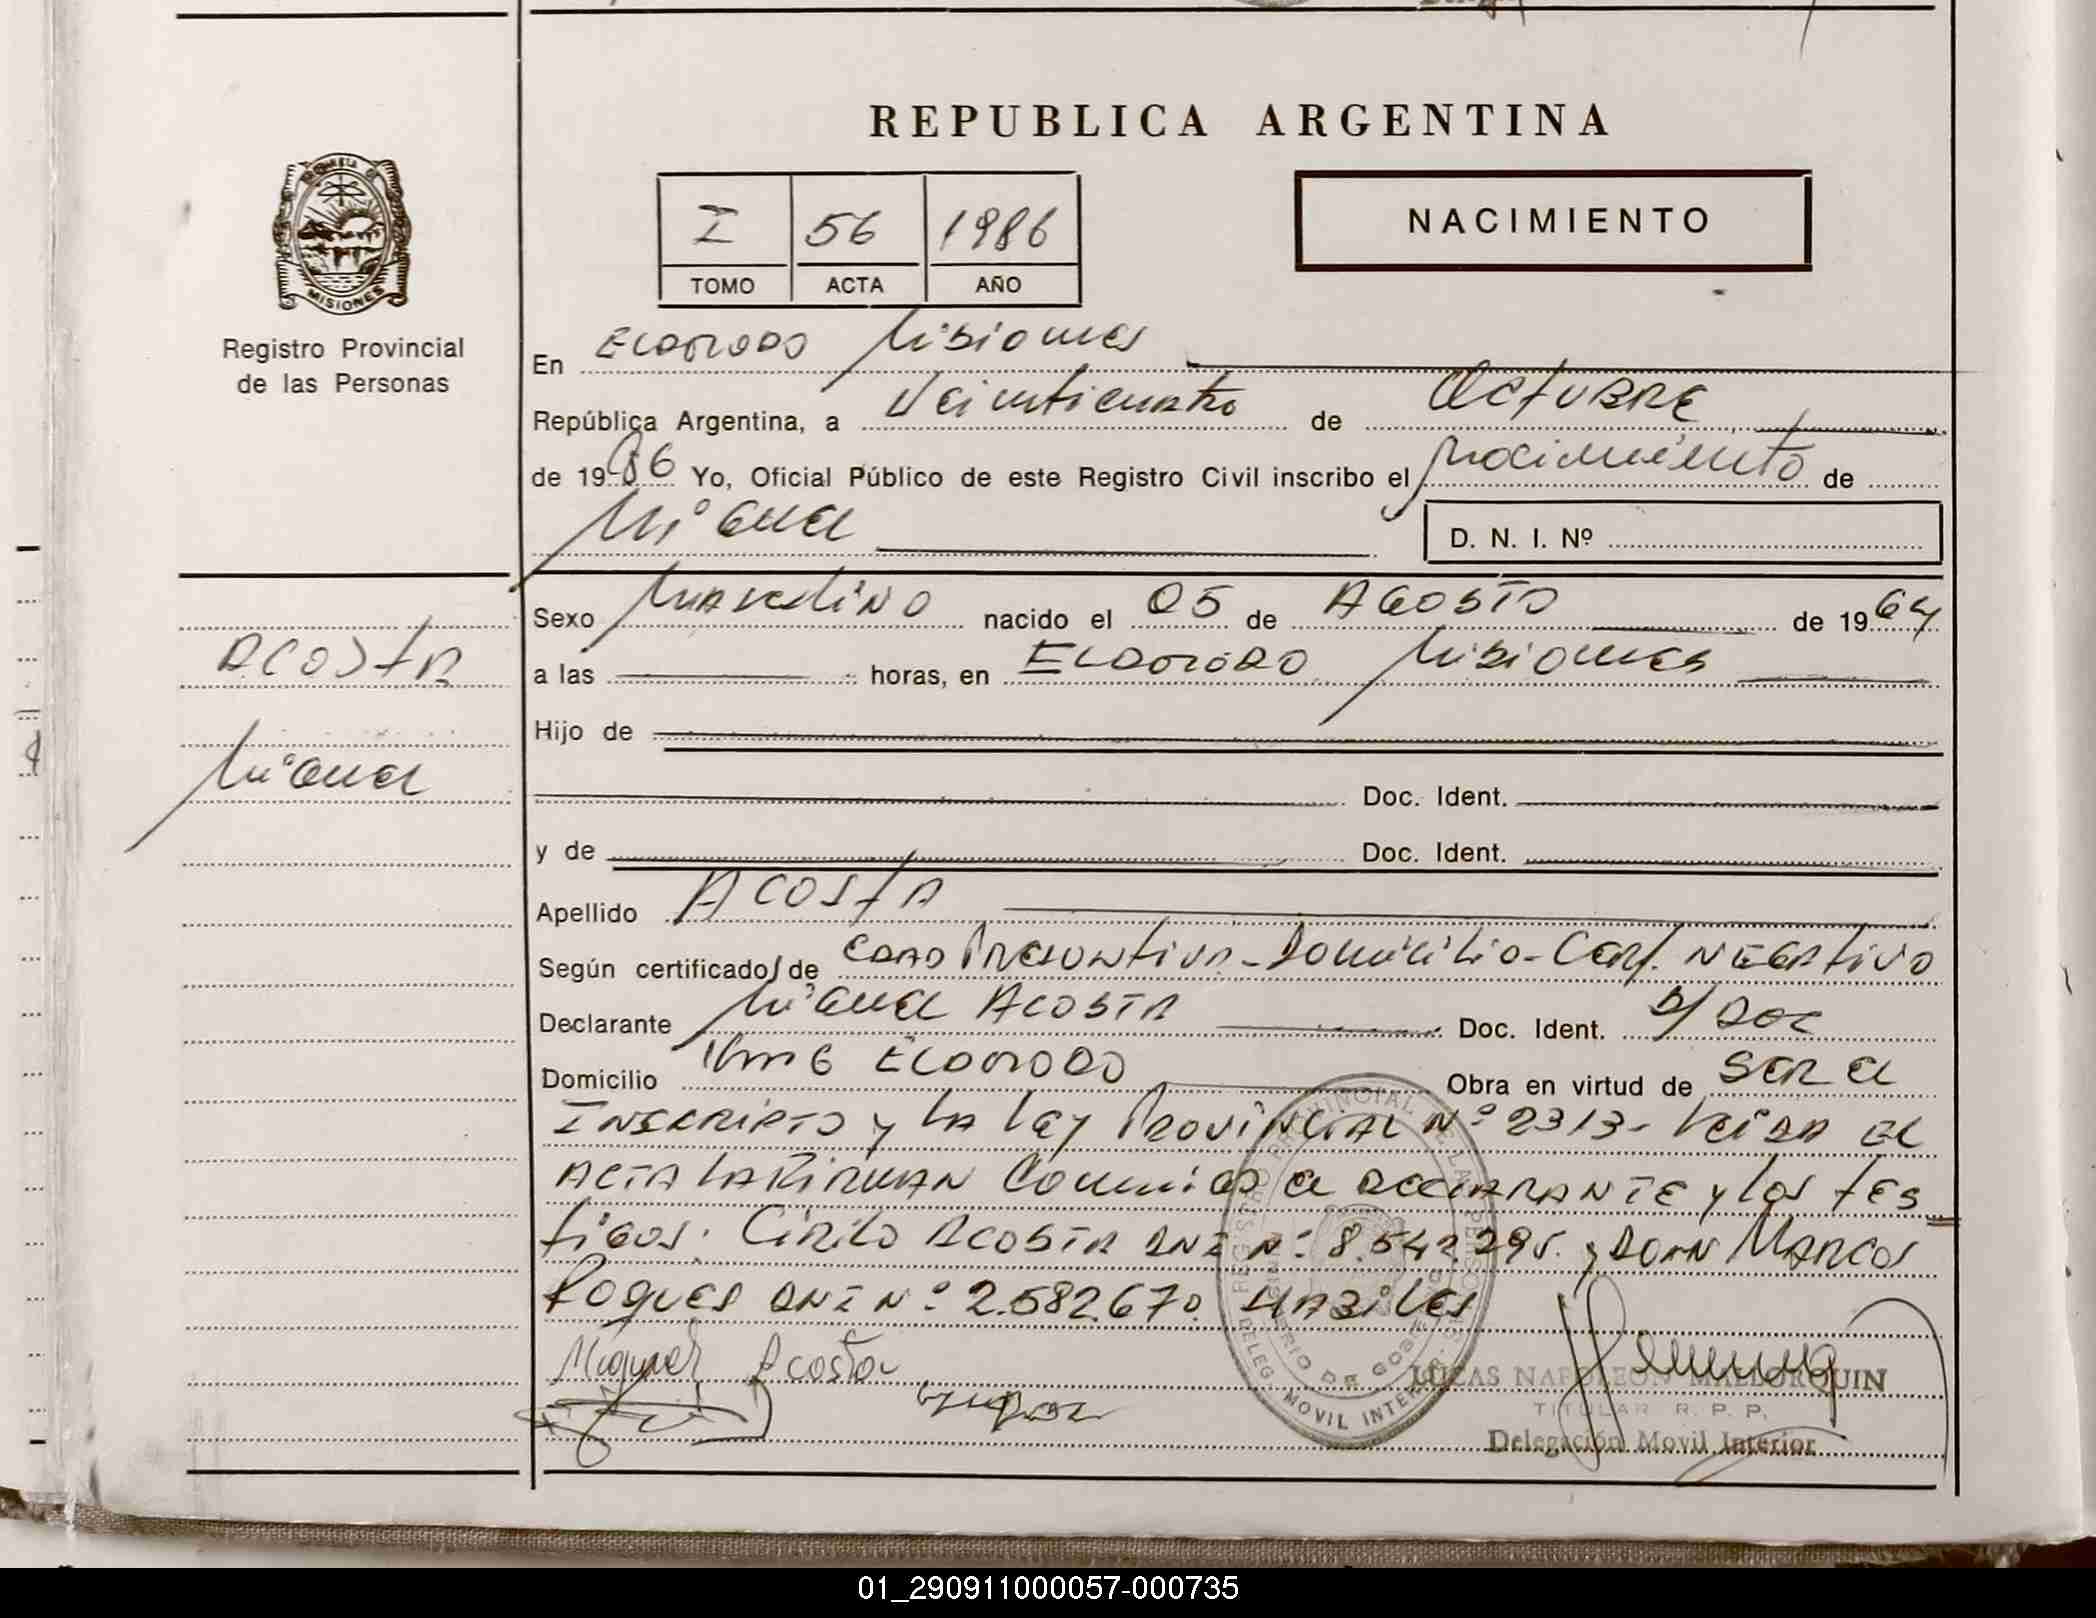 REPUBLICA ARGENTINA
I 56 1986
TOMO ACTA AÑO
NACIMIENTO
MISIONES
Registro Provincial
de las Personas
En ELDORADO Misiones
República Argentina, a Veinticuatro de OCTUBRE
de 1986 Yo, Oficial Público de este Registro Civil inscribo el nacimiento de
Miguel
D. N. I. Nº
Sexo Masculino nacido el 05 de AGOSTO de 1964
a las horas, en ELDORADO Misiones
Hijo de
Doc. Ident.
y de Doc. Ident.
ACOSTA
Miguel
Apellido ACOSTA
Según certificado/ de Edad Presuntiva - Domicilio - Cert. NEGATIVO
Declarante Miguel ACOSTA Doc. Ident. S/DOC
Domicilio Km 6 ELDORADO Obra en virtud de SER el
INSCRIPTO y LA Ley PROVINCIAL Nº 2313 - Leida el
ACTA LA FIRMAN Conmigo el DECLARANTE y los tes
tigos. Cirilo ACOSTA DNI Nº 8.542.295. y DON MARCOS
Roques DNI Nº 2.582.670. HABILES
Miguel Acosta
REGISTRO PROVINCIAL DE LAS PERSONAS
MINISTERIO DE GOBIERNO
DELEG. MOVIL INTERIOR
LUCAS NAPOLEON MALLORQUIN
TITULAR R. P. P.
Delegación Movil Interior
01_290911000057-000735